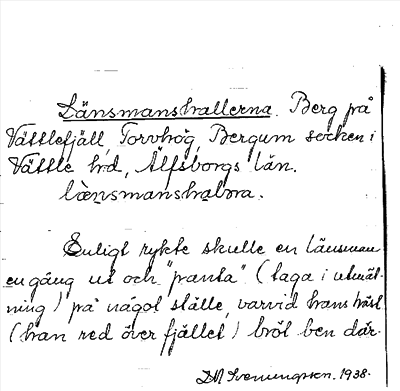 Länsmanshallerna. Berg på
Vättlefjäll, Torvhög, Bergum socken i
Vättle hd, Älfsborgs län.
lænsmanshalɷra.
Enligt rykte skulle en länsman
en gång ut och "panta" (taga i utmät-
ning) på något ställe, varvid hans häst
(han red över fjället) bröt ben där.
DM Svenungsson. 1938.